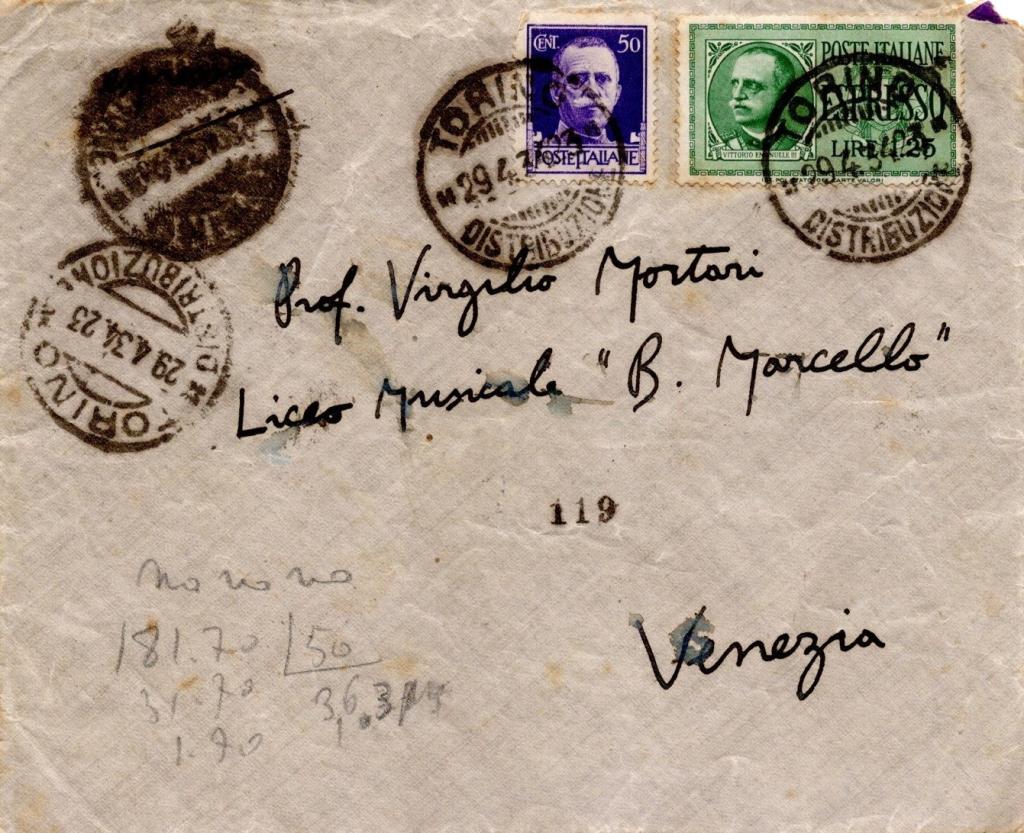 CENT. 50
POSTE ITALIANE
POSTE ITALIANE
ESPRESSO
LIRE 1.25
VITTORIO EMANUELE III
TORINO
29.4.34.23
DISTRIBUZIONE
TORINO
29.4.34.23
DISTRIBUZIONE
TORINO
29.4.34.23
DISTRIBUZIONE
Prof. Virgilio Mortari
Liceo Musicale "B. Marcello"
119
Venezia
no no no
181.70 50
31.70 36,3
1.70